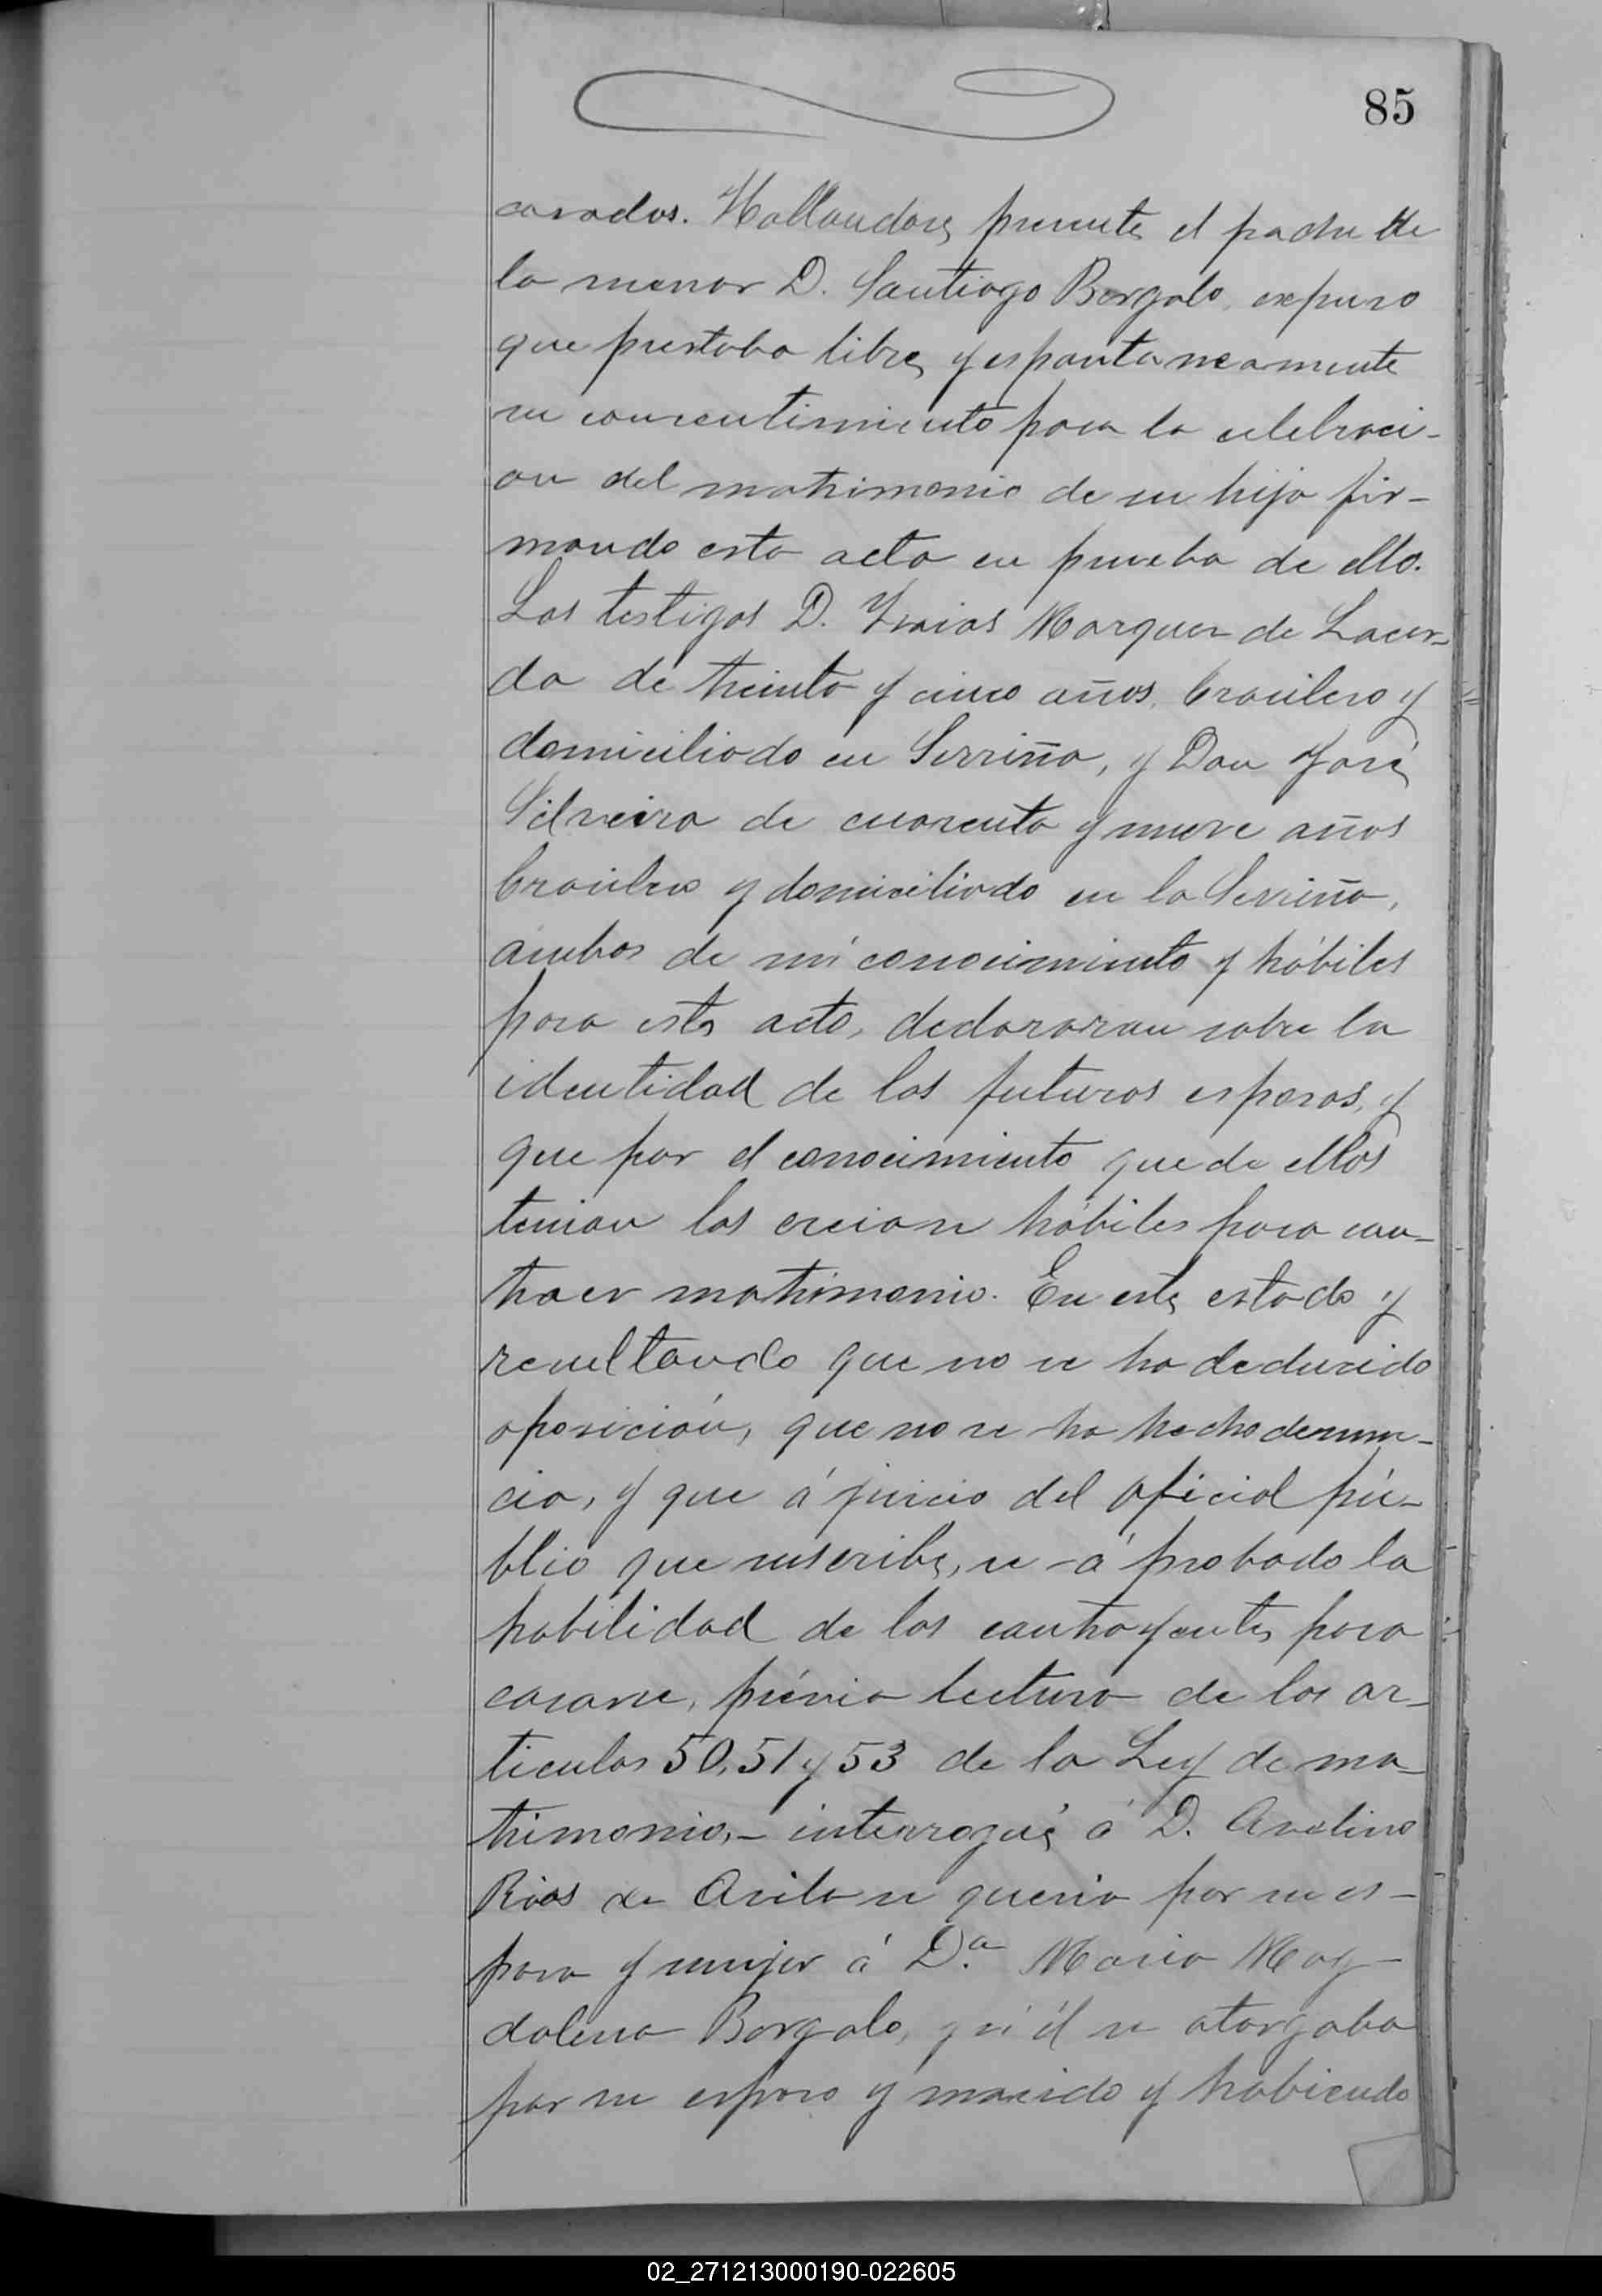 85
casados. Hallandose presente el padre de
la menor D. Santiago Borgalo, expuso
que prestaba libre y espontaneamente
su consentimiento para la celebraci-
on del matrimonio de su hija fir-
mando esta acta en prueba de ello.
Los testigos D. Ysaias Marques de Lacer-
da de treinta y cinco años, brasilero y
domiciliado en Serriña, y Don José
Silveira de cuarenta y nueve años
brasilero y domiciliado en la Serriña,
ámbos de mi conocimiento y hábiles
para este acto, declararan sobre la
identidad de los futuros esposos, y
que por el conocimiento que de ellos
tenian los creian hábiles para con-
traer matrimonio. En este estado y
resultando que no se ha deducido
oposición, que no se ha hecho denun-
cia, y que á juicio del oficial pú-
blio que suscribe, se á probado la
habilidad de los contrayentes para
casarse, prévia lectura de los ar-
ticulos 50, 51 y 53 de la Ley de ma-
trimonio,- interrogué á D. Avelino
Rios de Avila si queria por su es-
posa y mujer á D.ª Maria Mag-
dalena Borgalo, y si él se otorgaba
por su esposo y marido y habiendo
02_271213000190-022605